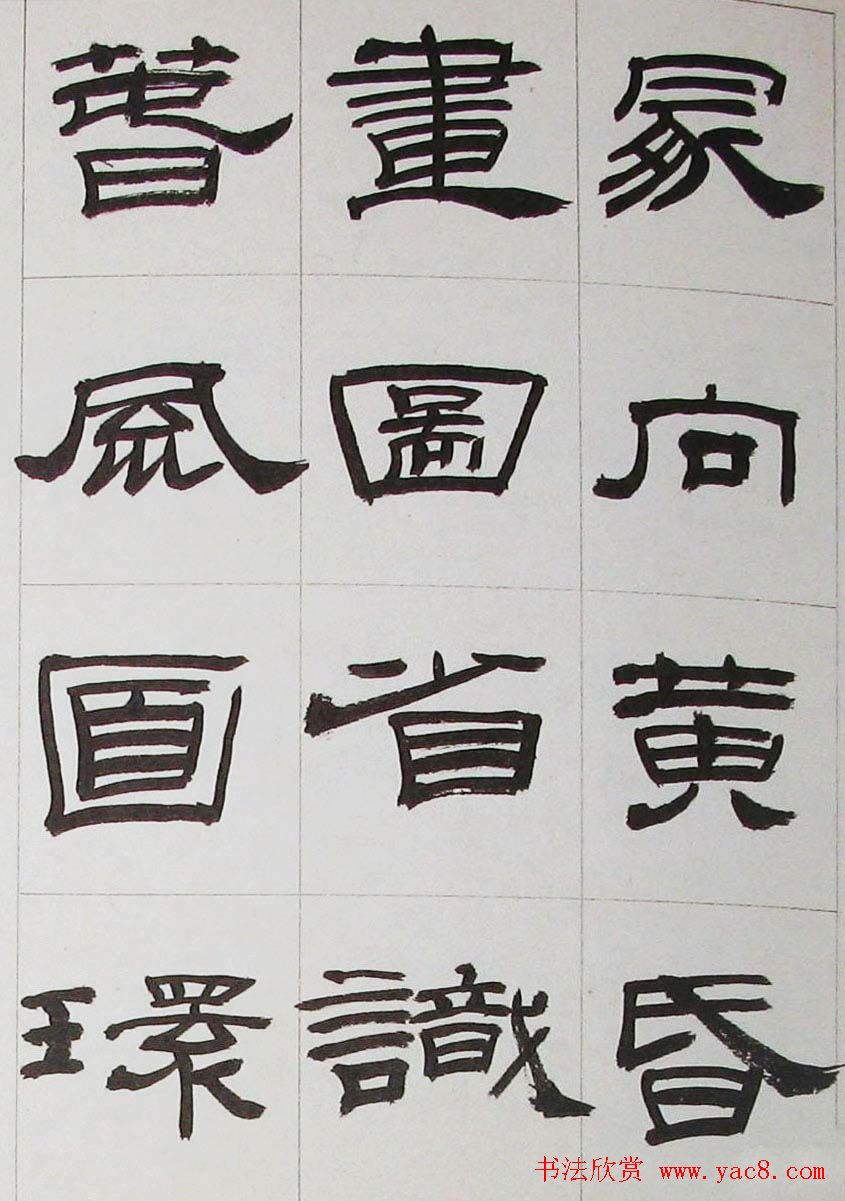 冢向黄昏
畫圖省識
萅風面環
书法欣赏 www.yac8.com